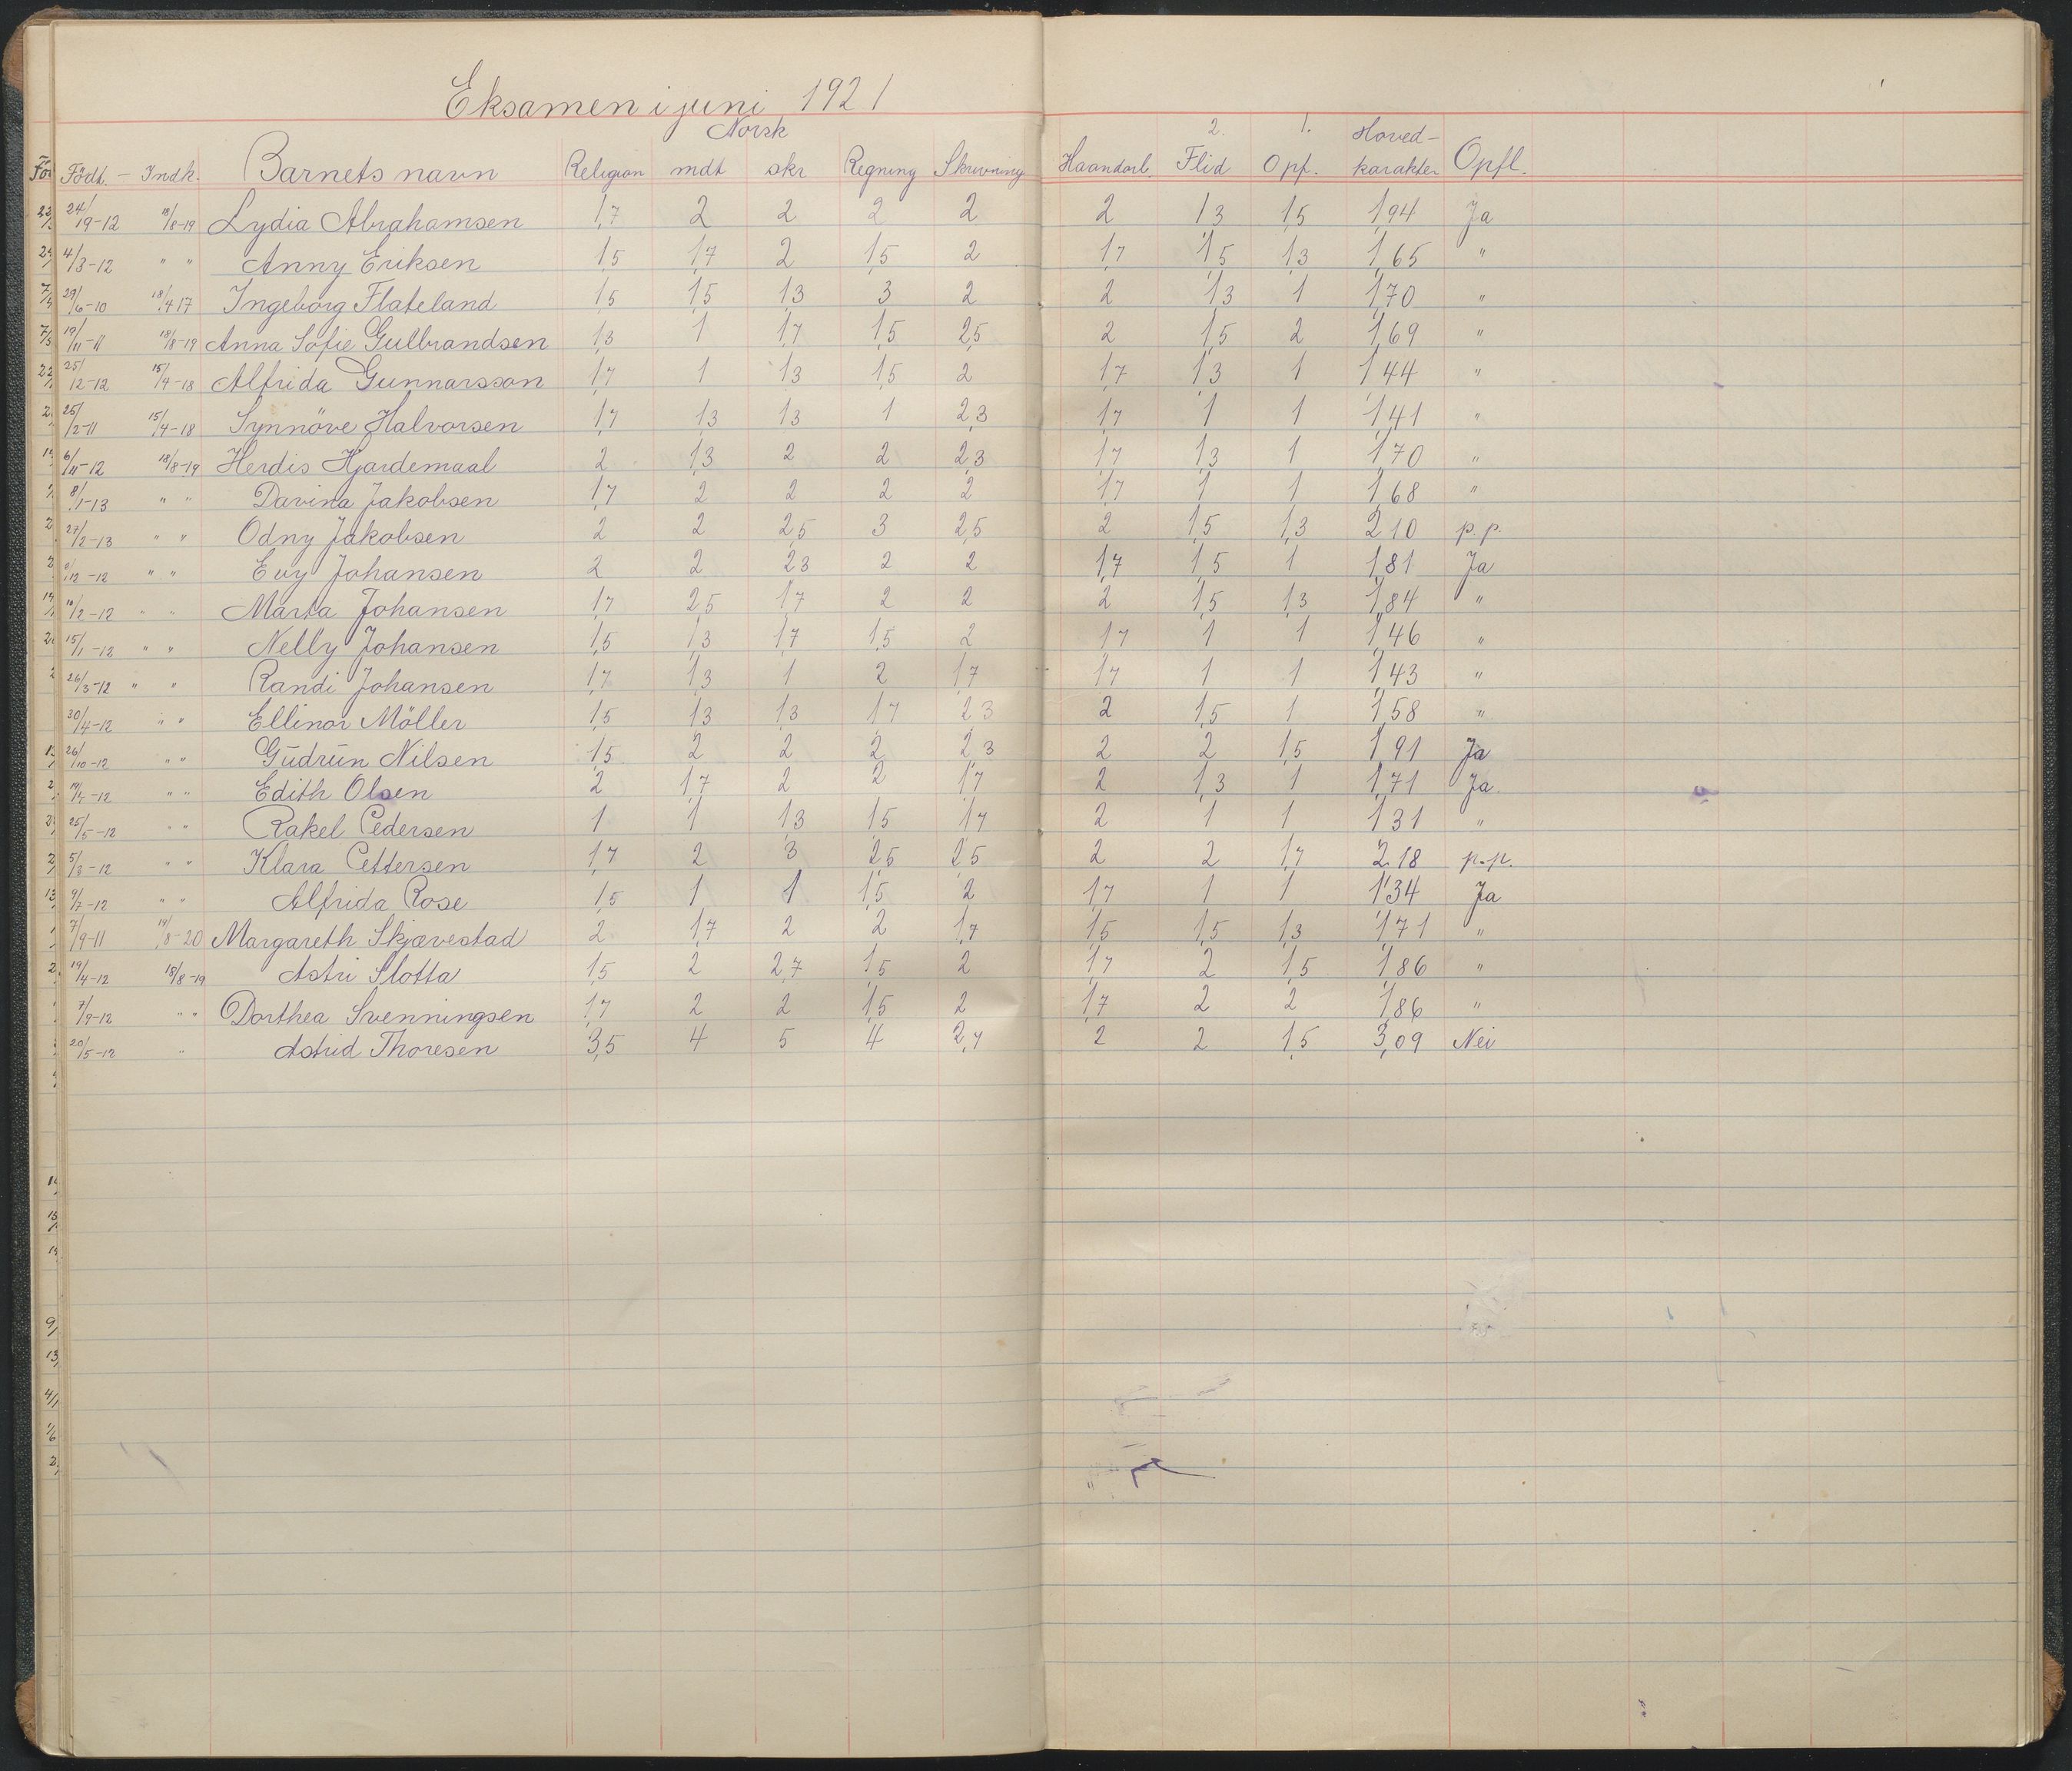 Eksamen i juni 1921
Norsk 2. 1. Hoved-
Födt. - Indk. Barnets navn Religion mdt skr Regning Skrivning Haandarb. Flid Opf. karakter Opfl.
24/9-12 18/8-19 Lydia Abrahamsen 1,7 2 2 2 2 2 1,3 1,5 1,94 Ja
4/3-12 " " Anny Eriksen 1,5 1,7 2 1,5 2 1,7 1,5 1,3 1,65 "
29/6-10 18/4 17 Ingeborg Flateland 1,5 1,5 1,3 3 2 2 1,3 1 1,70 "
19/11-11 18/8-19 Anna Sofie Gulbrandsen 1,3 1 1,7 1,5 2,5 2 1,5 2 1,69 "
25/12-12 15/4-18 Alfrida Gunnarsson 1,7 1 1,3 1,5 2 1,7 1,3 1 1,44 "
25/2-11 15/4-18 Synnöve Halvorsen 1,7 1,3 1,3 1 2,3 1,7 1 1 1,41 "
6/11-12 18/8-19 Herdis Hjardemaal 2 1,3 2 2 2,3 1,7 1,3 1 1,70 "
8/1-13 " " Davina Jakobsen 1,7 2 2 2 2 1,7 1 1 1,68 "
27/2-13 " " Odny Jakobsen 2 2 2,5 3 2,5 2 1,5 1,3 2,10 p.p.
/12-12 " " Evy Johansen 2 2 2,3 2 2 1,7 1,5 1 1,81 Ja
/2-12 " " Marta Johansen 1,7 2,5 1,7 2 2 2 1,5 1,3 1,84 "
15/1-12 " " Nelly Johansen 1,5 1,3 1,7 1,5 2 1,7 1 1 1,46 "
26/3-12 " " Randi Johansen 1,7 1,3 1 2 1,7 1,7 1 1 1,43 "
30/4-12 " " Ellinor Möller 1,5 1,3 1,3 1,7 2,3 2 1,5 1 1,58 "
26/10-12 " " Gudrun Nilsen 1,5 2 2 2 2,3 2 2 1,5 1,91 Ja
/4-12 " " Edith Olsen 2 1,7 2 2 1,7 2 1,3 1 1,71 Ja
25/5-12 " " Rakel Pedersen 1 1 1,3 1,5 1,7 2 1 1 1,31 "
5/3-12 " " Klara Pettersen 1,7 2 3 2,5 2,5 2 2 1,7 2,18 p.p.
9/7-12 " " Alfrida Rose 1,5 1 1 1,5 2 1,7 1 1 1,34 Ja
7/9-11 19/8-20 Margareth Skjævestad 2 1,7 2 2 1,7 1,5 1,5 1,3 1,71 "
19/4-12 18/8-19 Astri Slotta 1,5 2 2,7 1,5 2 1,7 2 1,5 1,86 "
7/9-12 " " Dorthea Svenningsen 1,7 2 2 1,5 2 1,7 2 2 1,86 "
20/5-12 " Astrid Thoresen 3,5 4 5 4 2,7 2 2 1,5 3,09 Nei